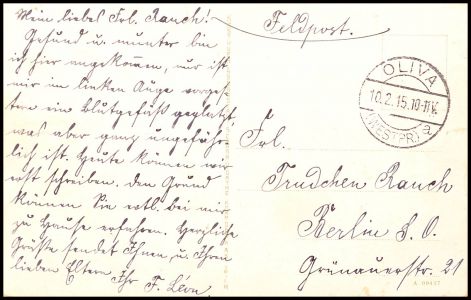 Mein liebes Frl. Rauch!
Gesund u. munter bin
ich hier angekommen, nur ist
mir im linken Auge vorges-
tern ein Blutgefäß geplatzt,
was aber ganz ungefähr-
lich ist. Heute können wir
erst schreiben. Den Grund
können Sie evtl. bei mir
zu Hause erfahren. Herzliche
Grüße sendet Ihnen u. Ihren
lieben Eltern Ihr F. Léon.
Feldpost.
OLIVA
10.2.15.10-11V.
(WESTPR.) a
Frl.
Trudchen Rauch
Berlin S.O.
Grünauerstr. 21